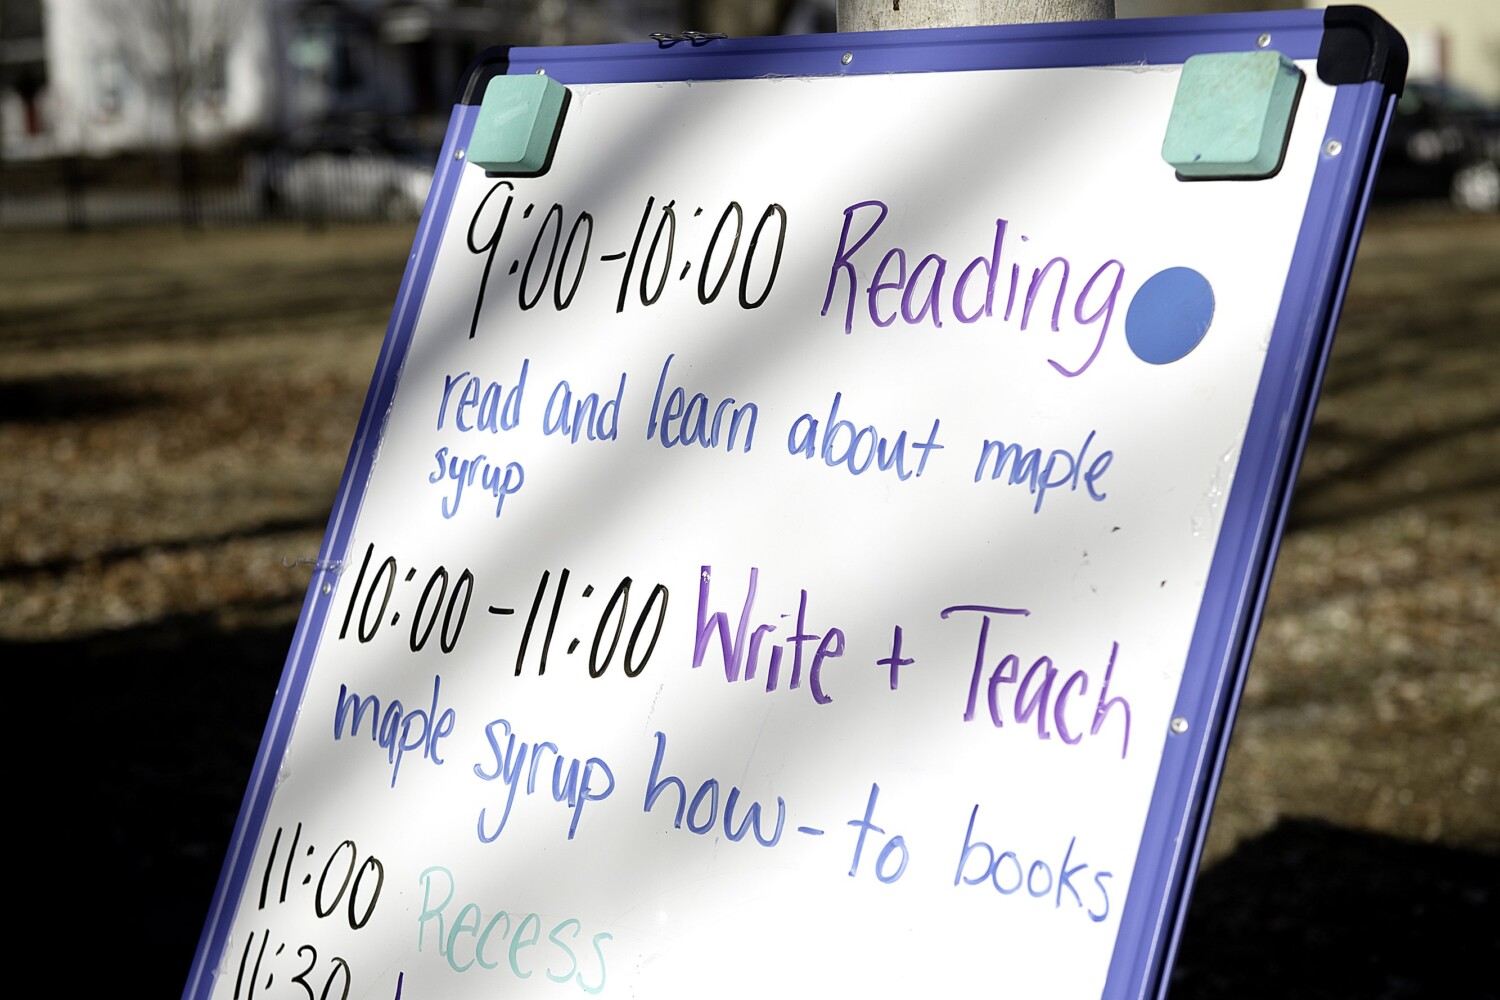 9:00-10:00 Reading
read and learn about maple
syrup
10:00-11:00 Write + Teach
maple syrup how-to books
11:00 Recess
11:30